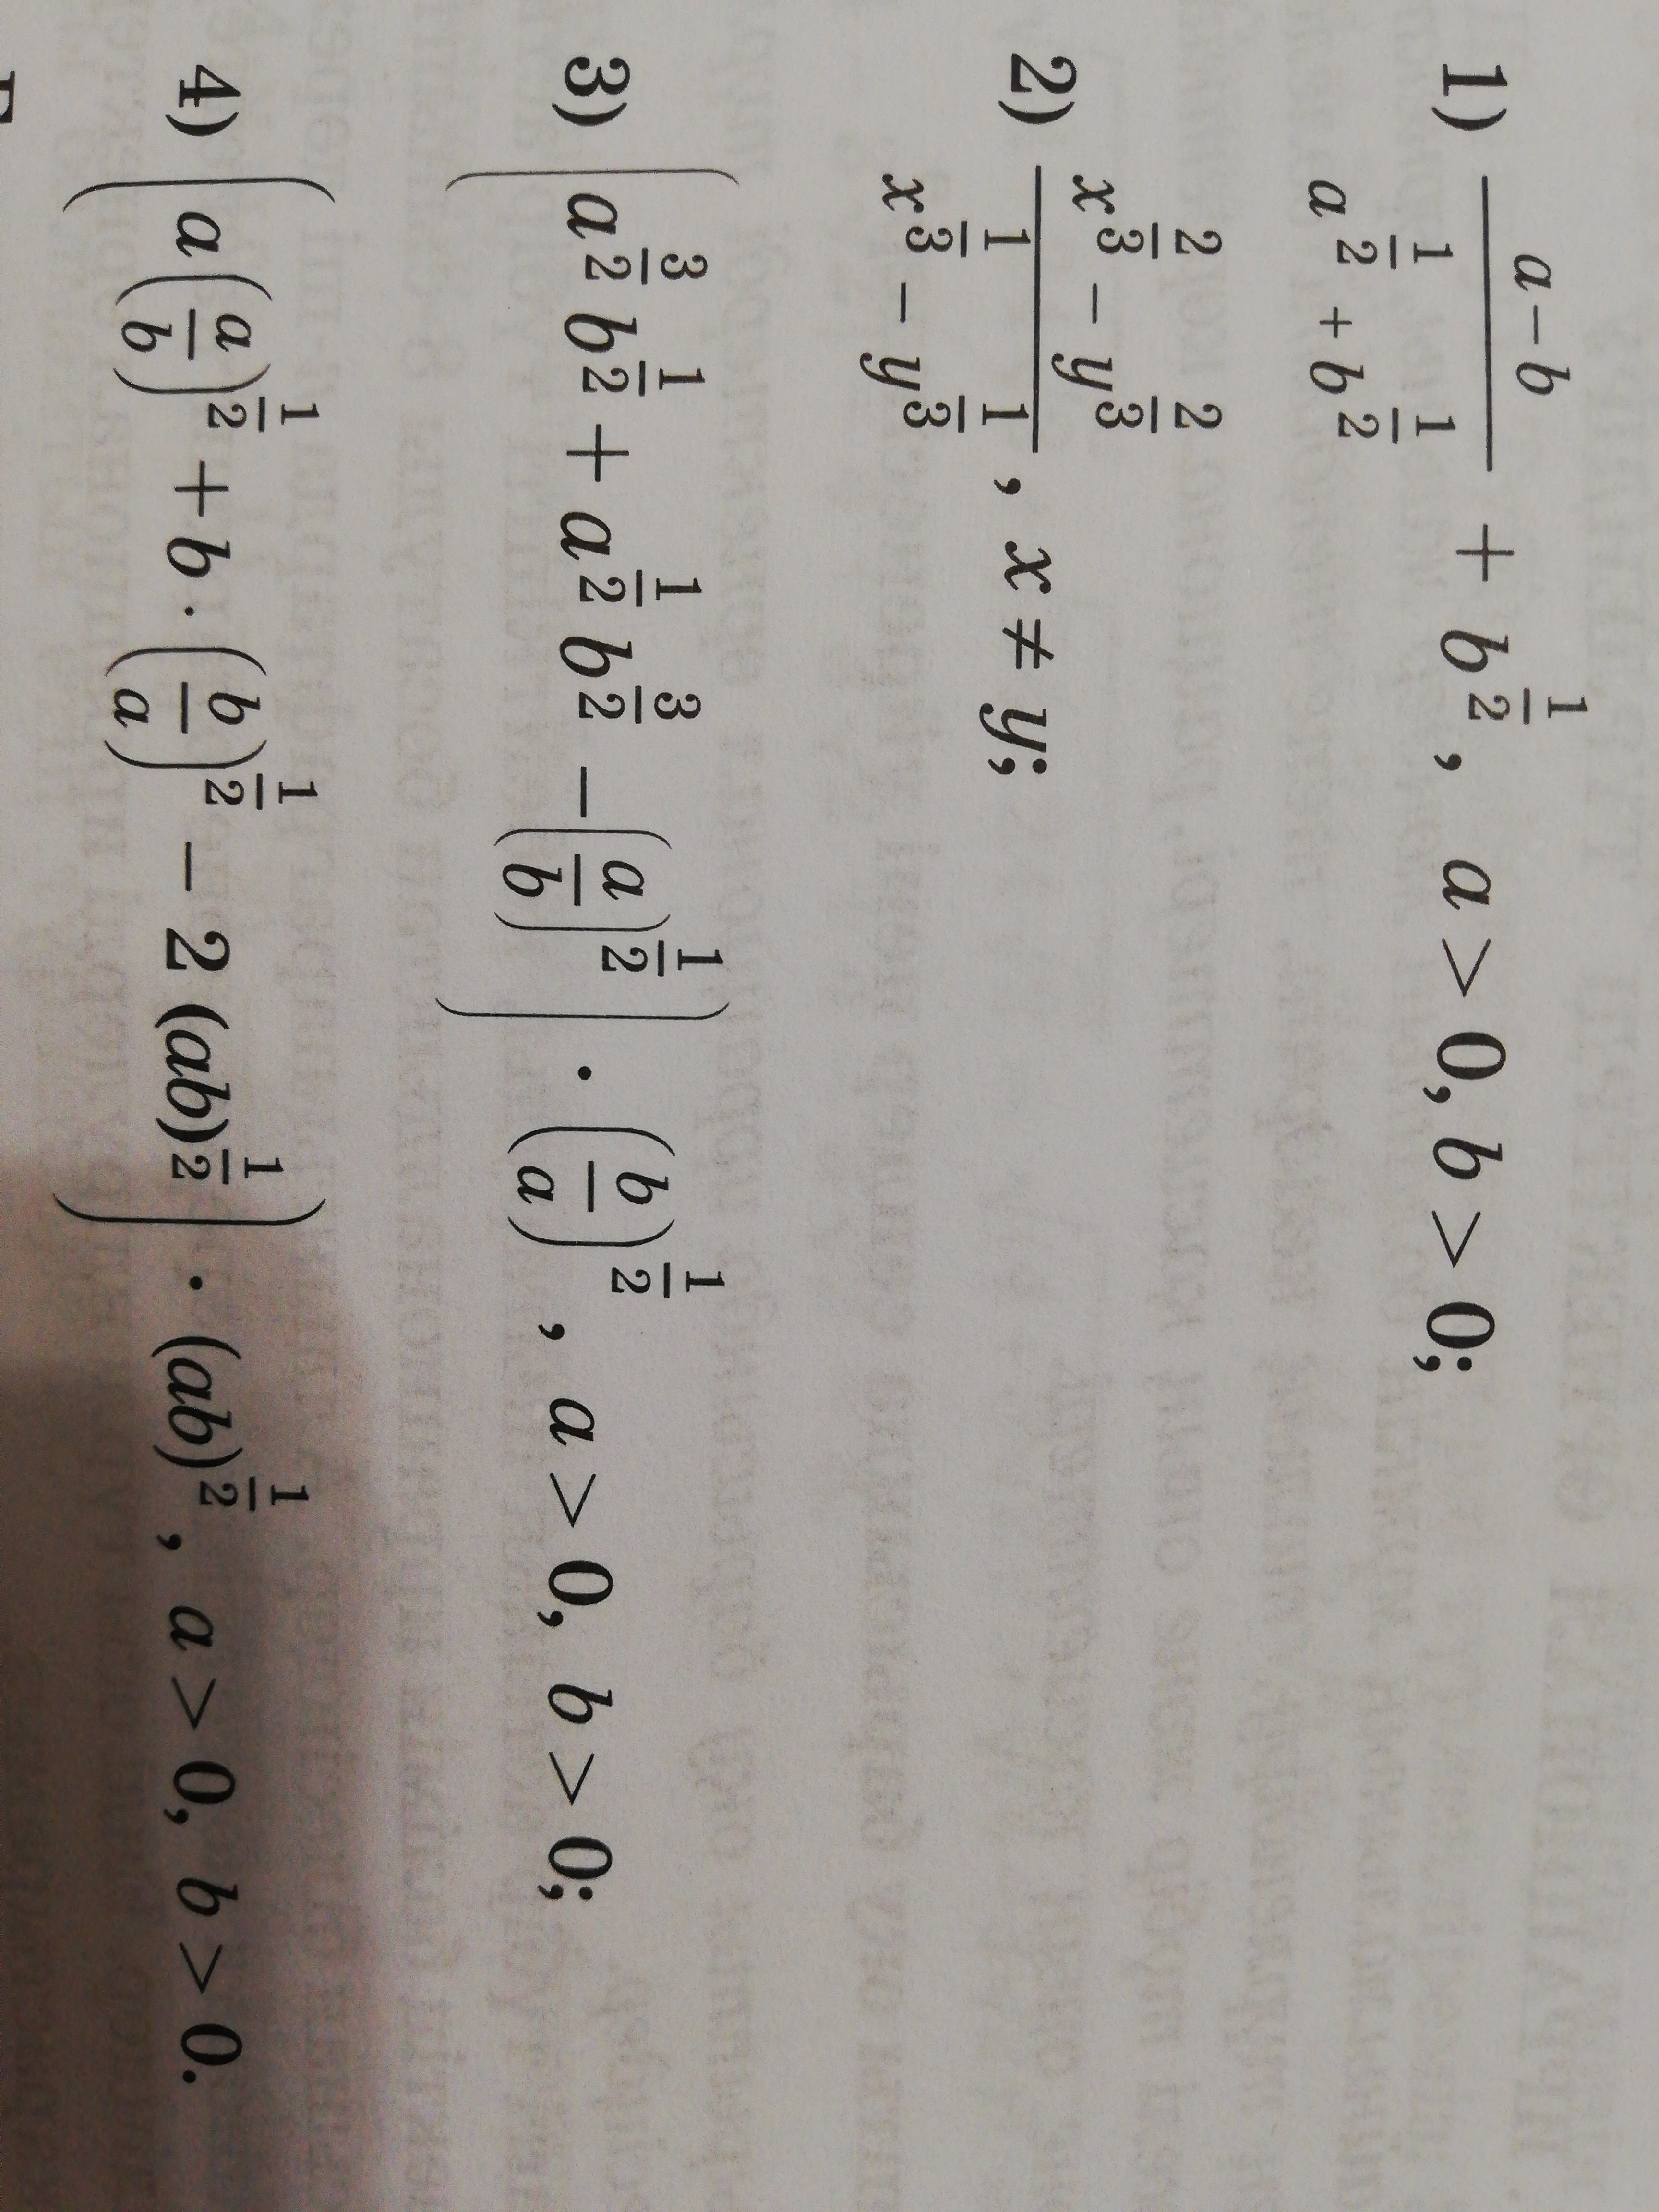 1) \frac{a-b}{a^{\frac{1}{2}}+b^{\frac{1}{2}}} + b^{\frac{1}{2}}, a > 0, b > 0;
2) \frac{x^{\frac{2}{3}}-y^{\frac{2}{3}}}{x^{\frac{1}{3}}-y^{\frac{1}{3}}}, x ≠ y;
3) \left(a^{\frac{3}{2}}b^{\frac{1}{2}}+a^{\frac{1}{2}}b^{\frac{3}{2}}-\left(\frac{a}{b}\right)^{\frac{1}{2}}\right) · \left(\frac{b}{a}\right)^{\frac{1}{2}}, a > 0, b > 0;
4) \left(a\left(\frac{a}{b}\right)^{\frac{1}{2}}+b·\left(\frac{b}{a}\right)^{\frac{1}{2}}-2(ab)^{\frac{1}{2}}\right) · (ab)^{\frac{1}{2}}, a > 0, b > 0.